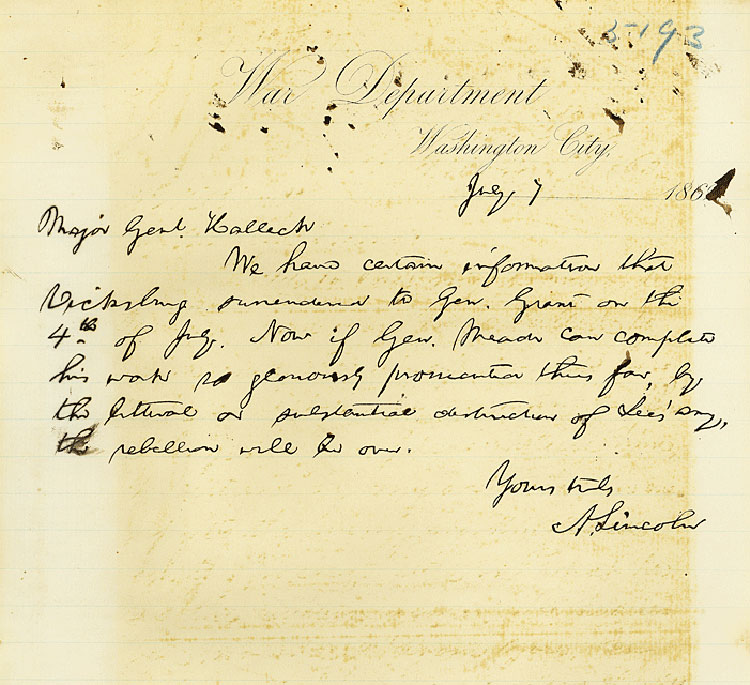 5193
War Department
Washington City,
July 7 186
Major Genl. Halleck
We have certain information that
Vicksburg surrendered to Gen. Grant on the
4th of July. Now if Gen. Meade can complete
his work so gloriously prosecuted thus far, by
the littoral or substantial destruction of Lee's army,
the rebellion will be over.
Yours truly
A. Lincoln